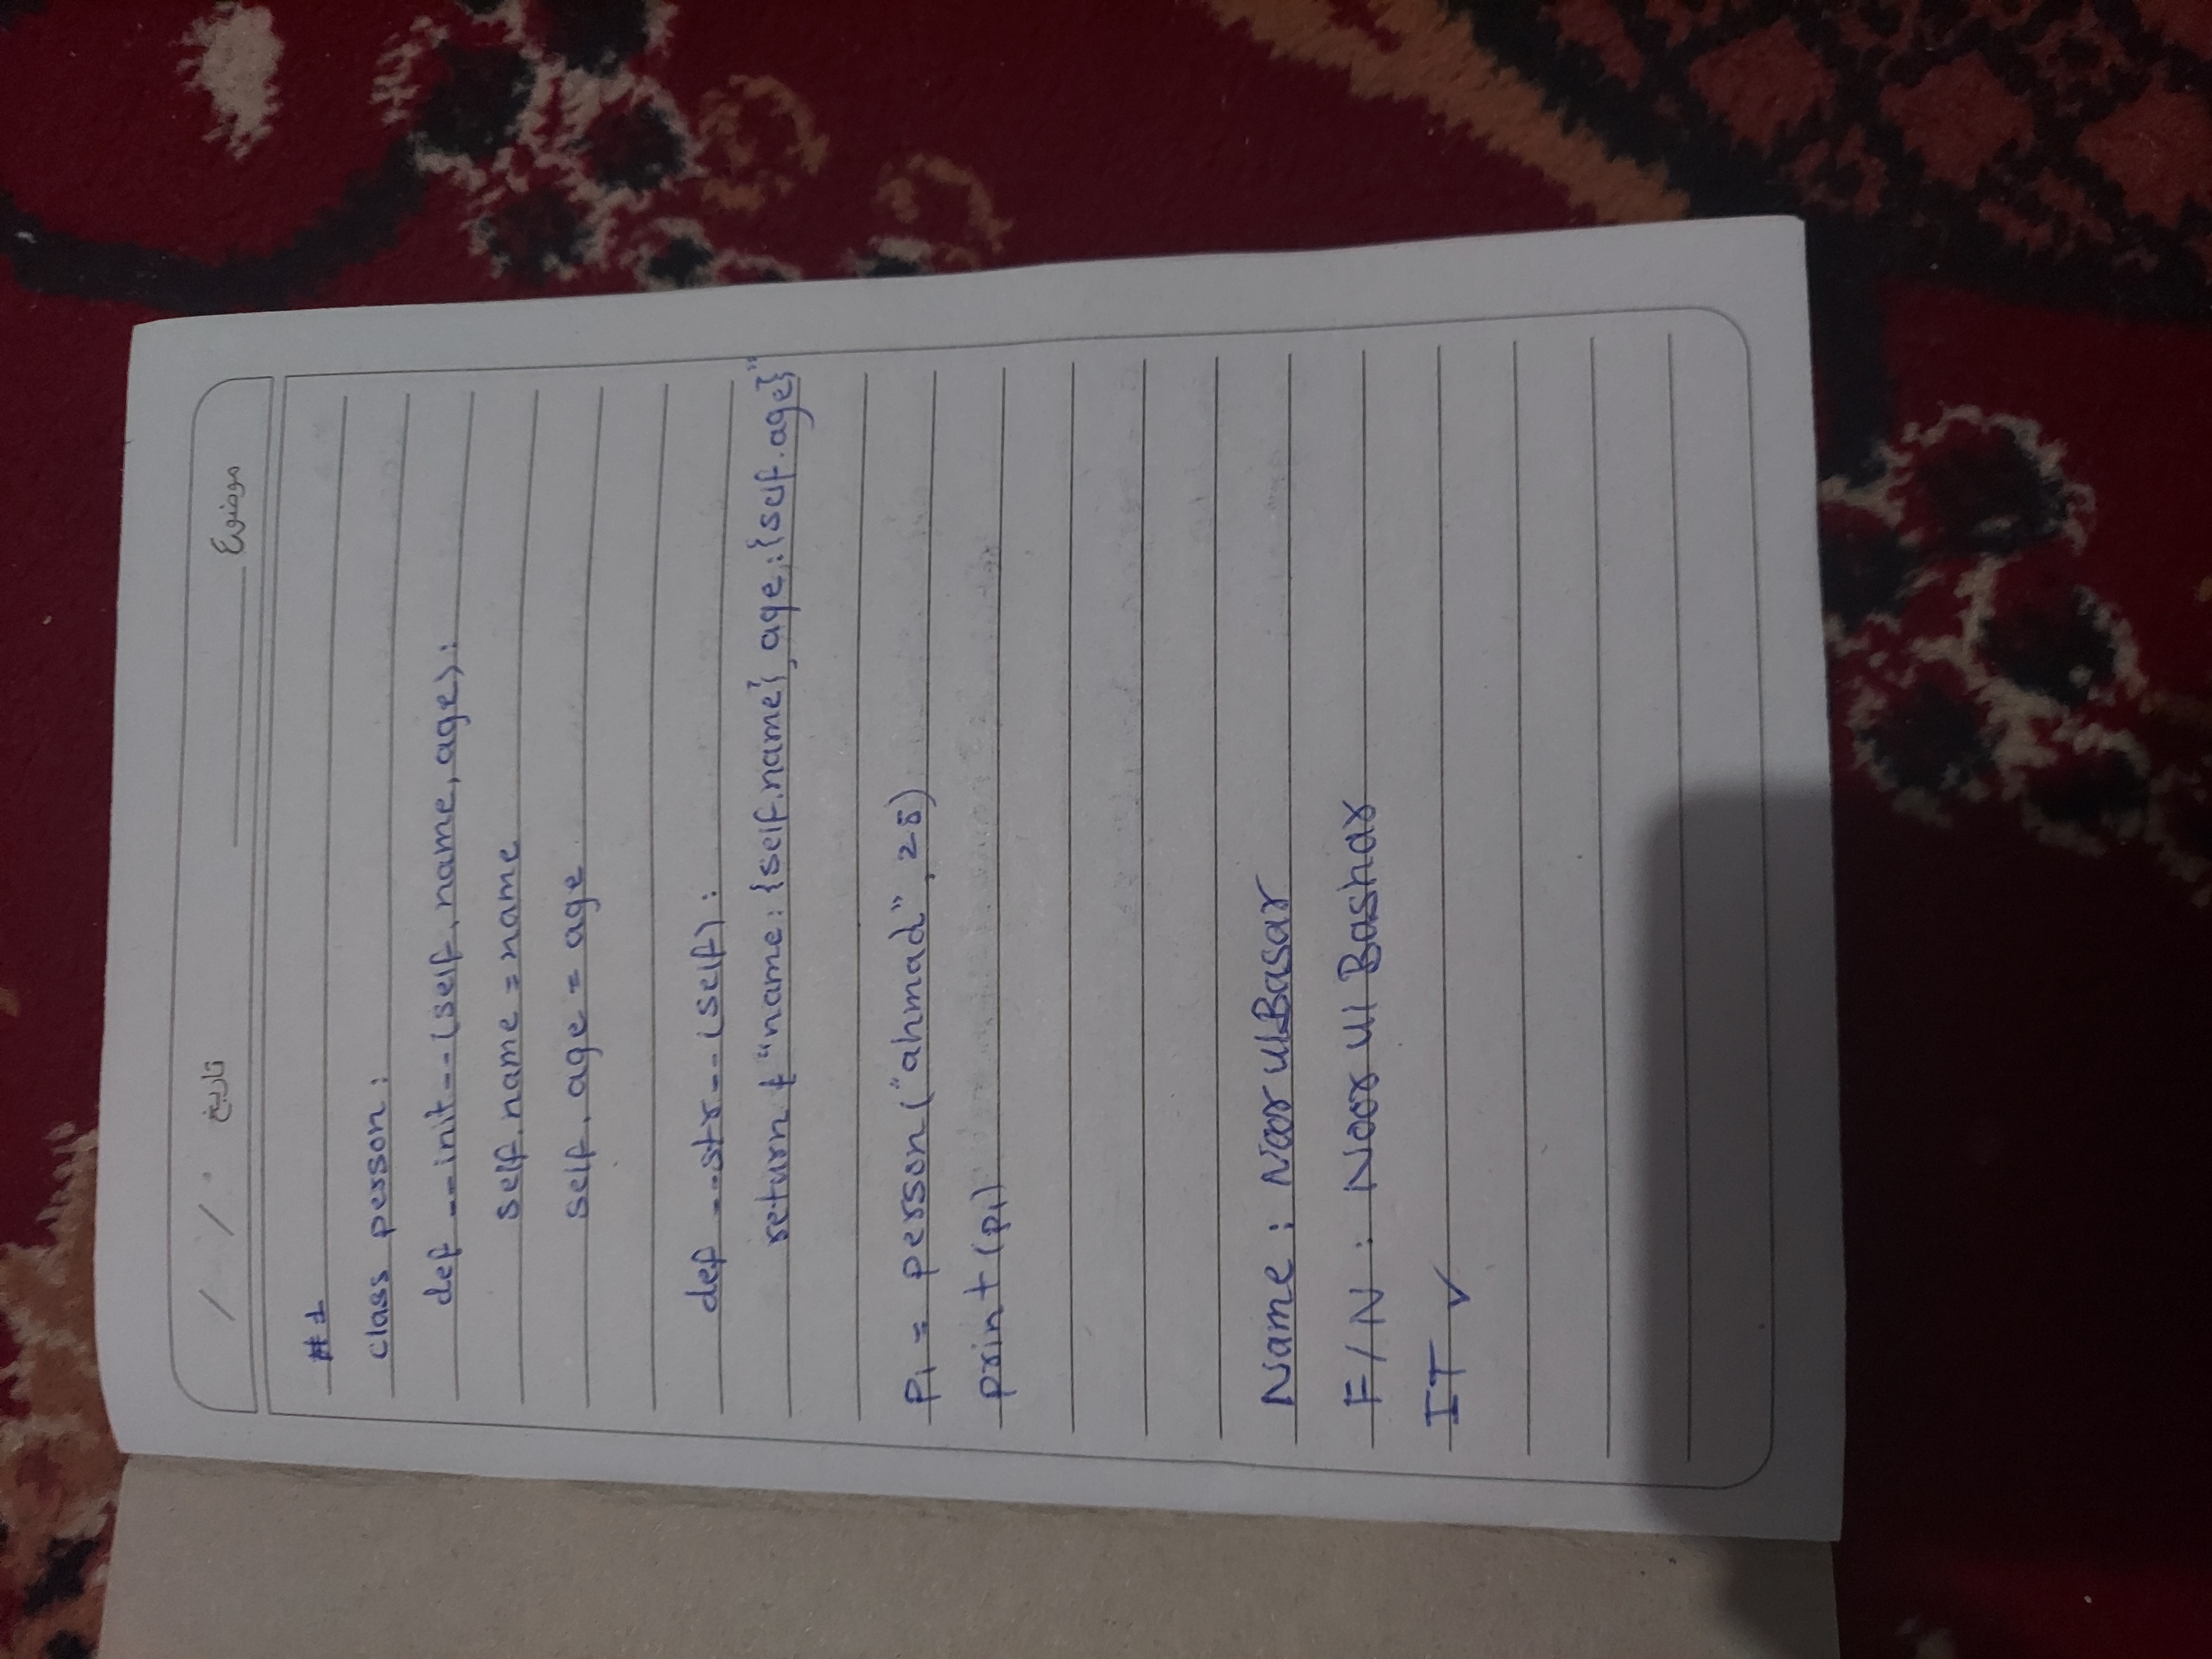 موضوع تاریخ / /
#1
class person:
def __init__(self, name, age):
self.name = name
self.age = age
def __str__(self):
return f "name: {self.name}, age:{self.age}"
p1 = person("ahmad", 25)
print(p1)
Name: Noor ul Basar
F/N: Noor ul Bashar
IT ✓